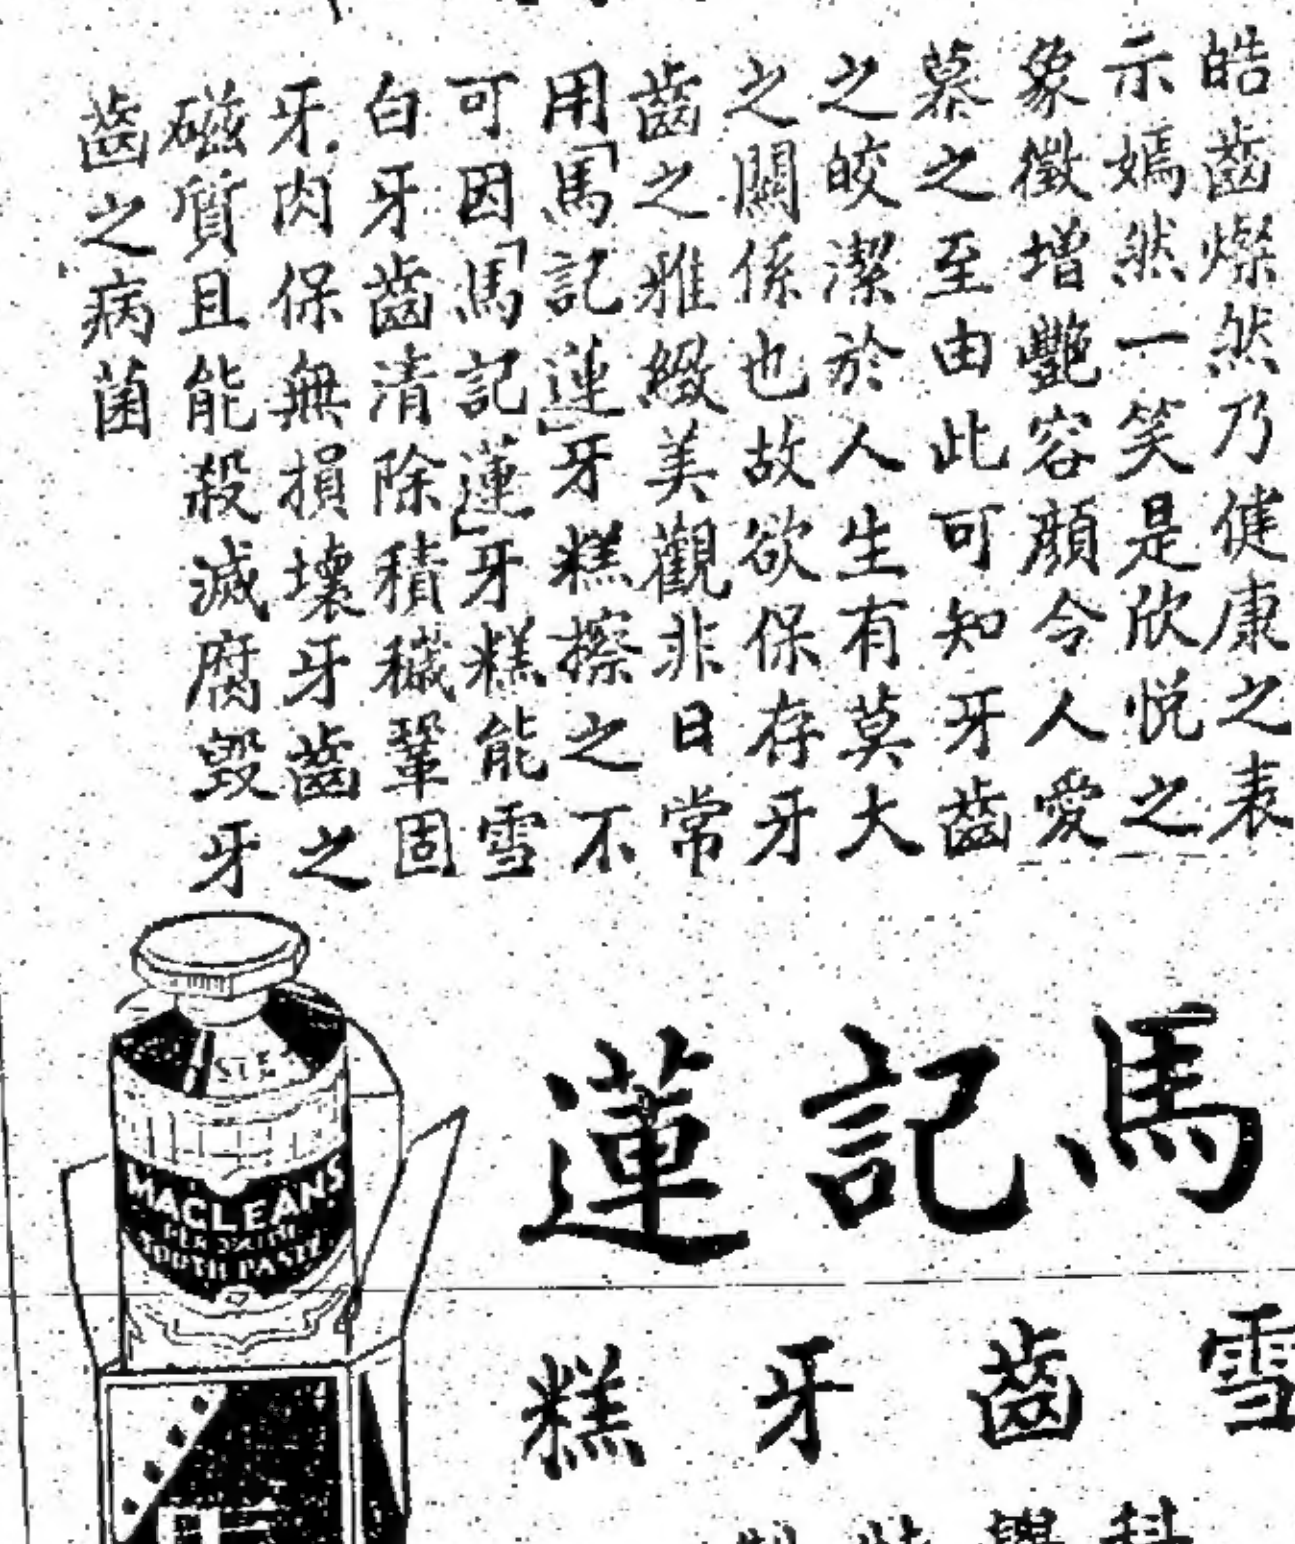 皓齒燦然乃健康之表
示嫣然一笑是欣悅之
象徵增艷容顏令人愛
慕之至由此可知牙齒
之皎潔於人生有莫大
之關係也故欲保存牙
齒之雅緻美觀非日常
用「馬記蓮」牙糕擦之不
可因「馬記蓮」牙糕能雪
白牙齒清除積穢鞏固
牙肉保無損壞牙齒之
磁質且能殺滅腐毀牙
齒之病菌
馬記蓮
雪齒牙糕
MACLEANS
PEROXIDE
TOOTH PASTE